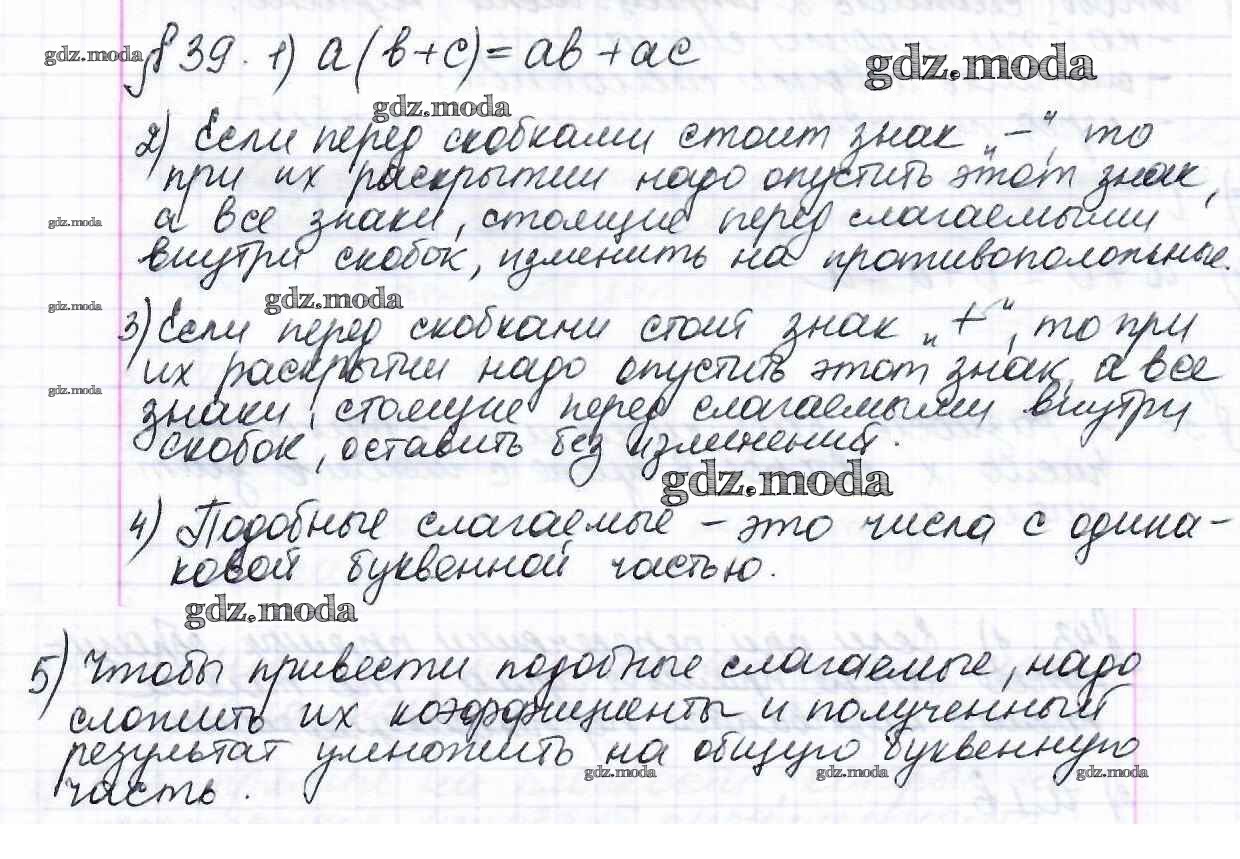 § 39. 1) a(b+c)=ab+ac
2) Если перед скобками стоит знак „–“, то
при их раскрытии надо опустить этот знак,
а все знаки, стоящие перед слагаемыми
внутри скобок, изменить на противоположные.
3) Если перед скобками стоит знак „+“, то при
их раскрытии надо опустить этот знак, а все
знаки, стоящие перед слагаемыми внутри
скобок, оставить без изменений.
4) Подобные слагаемые – это числа с одина-
ковой буквенной частью.
5) Чтобы привести подобные слагаемые, надо
сложить их коэффициенты и полученный
результат умножить на общую буквенную
часть.
gdz.moda
gdz.moda
gdz.moda
gdz.moda
gdz.moda
gdz.moda
gdz.moda
gdz.moda
gdz.moda
gdz.moda
gdz.moda
gdz.moda